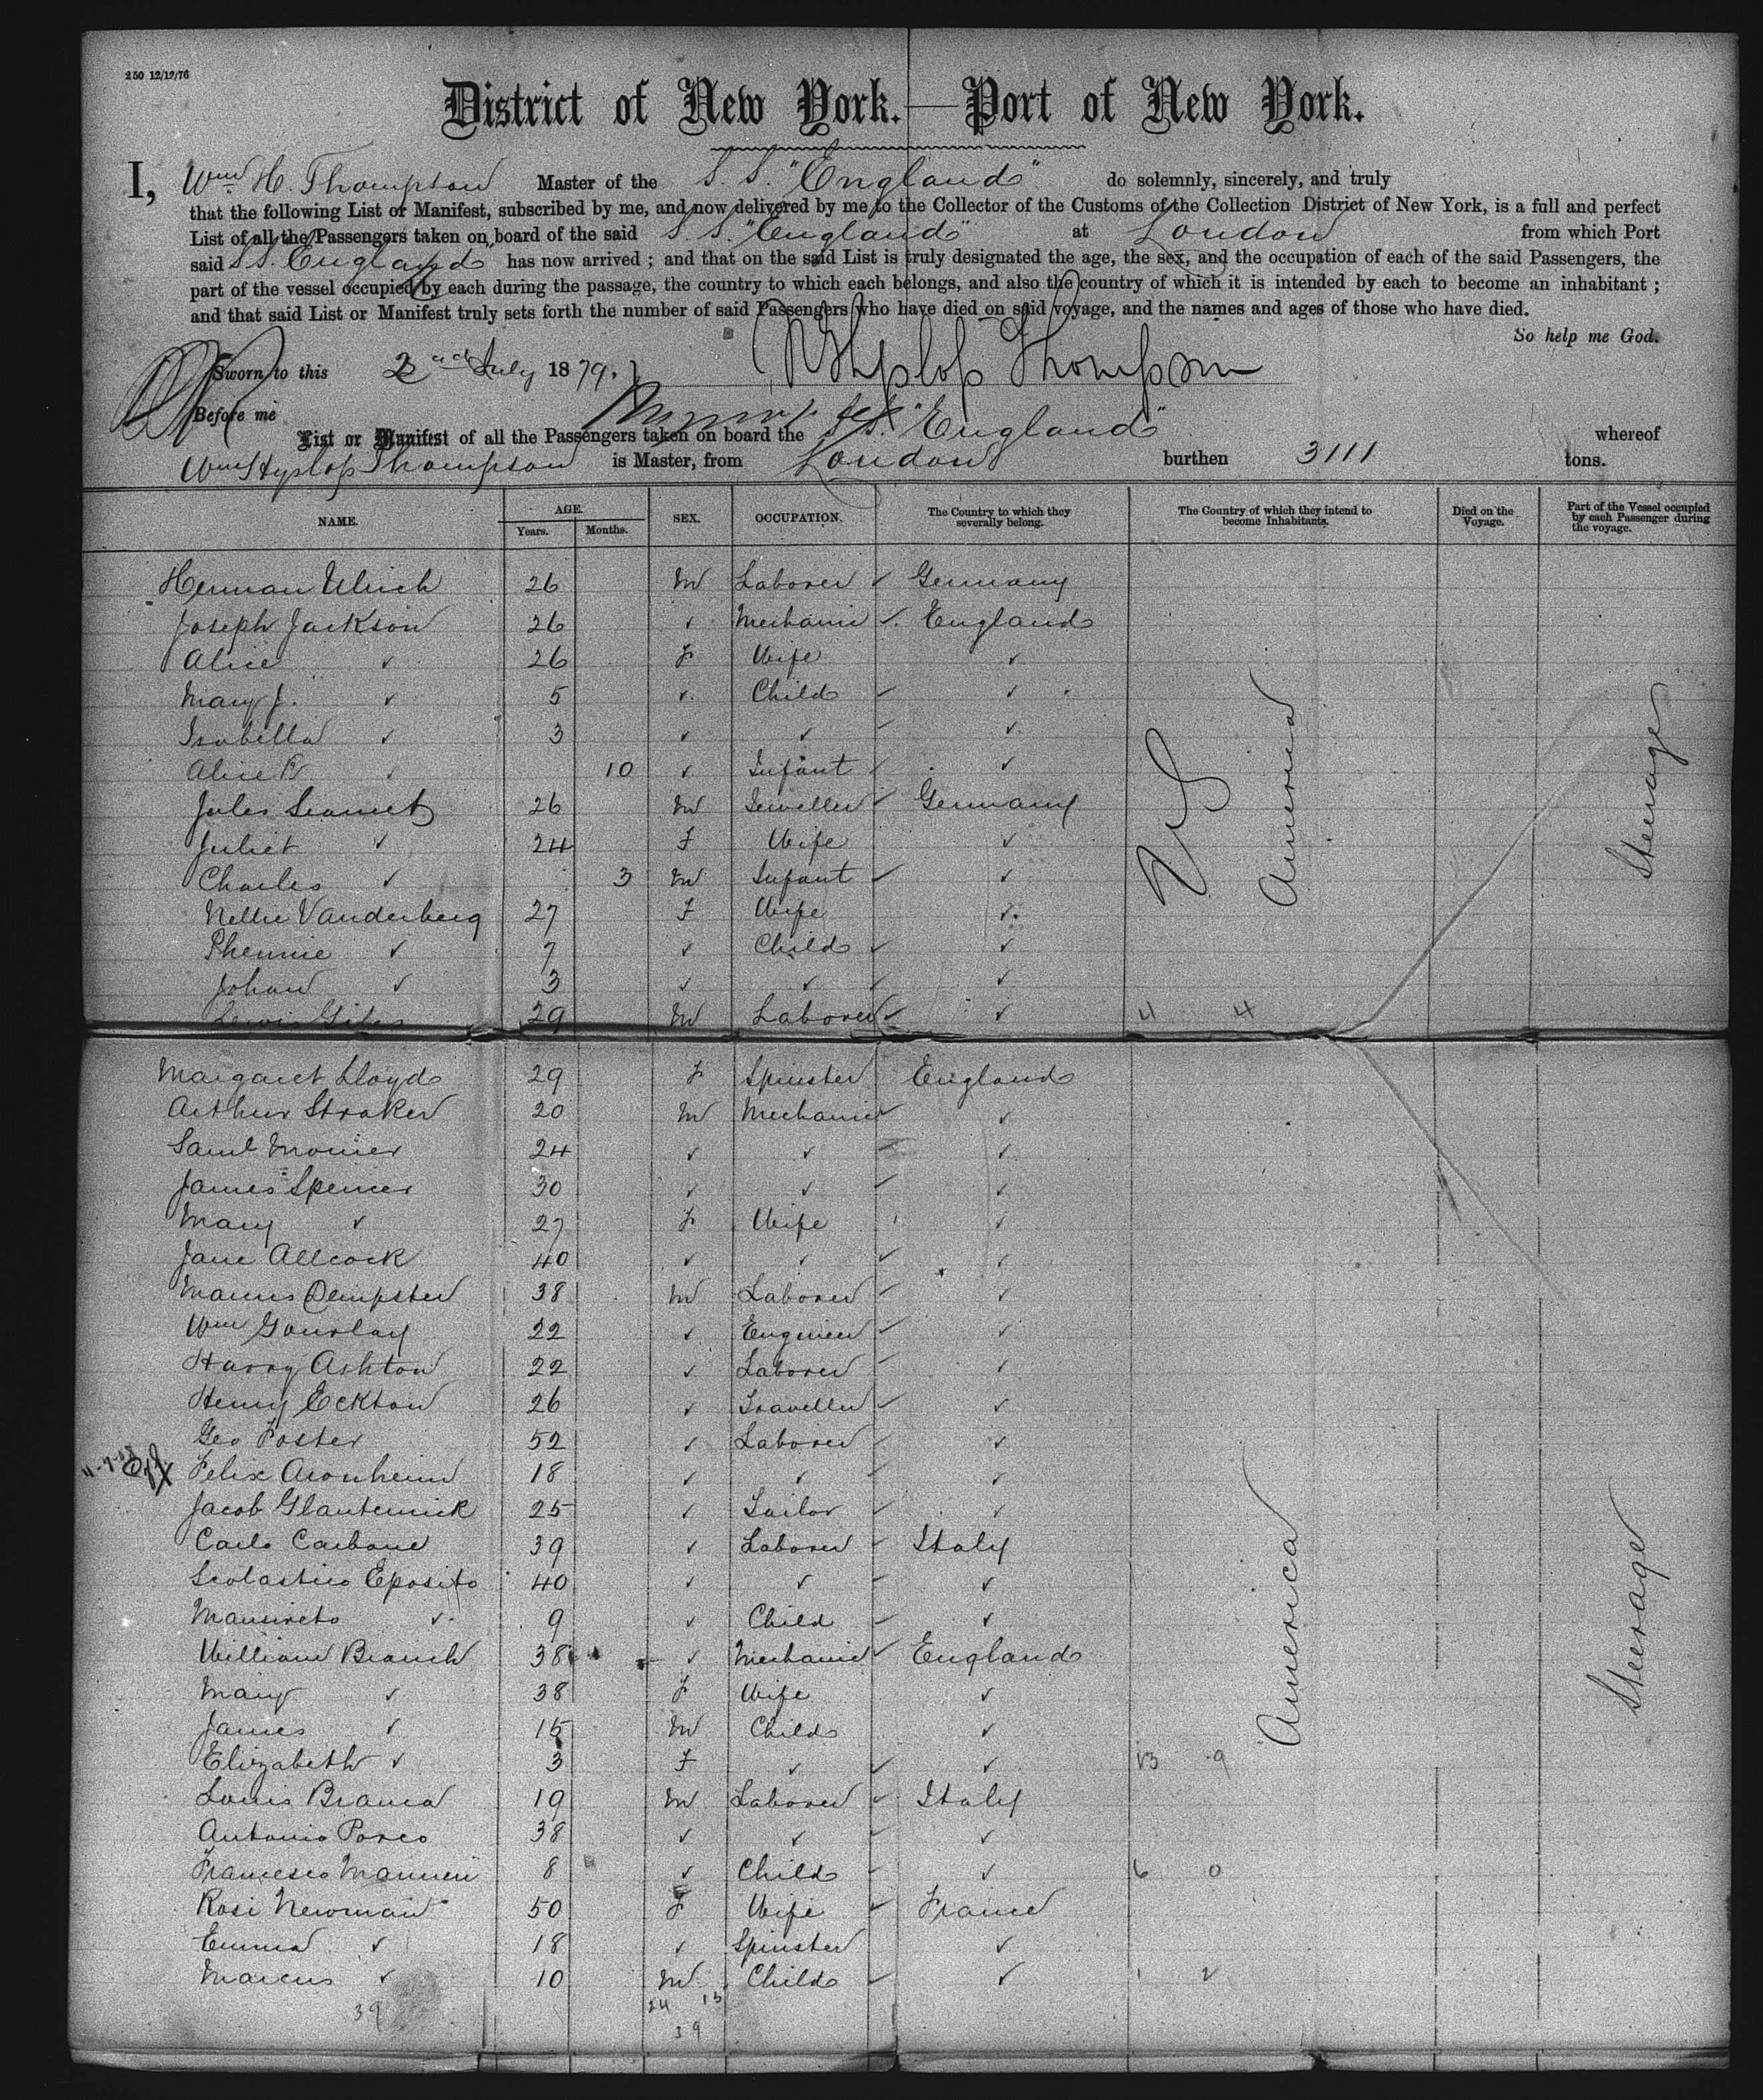 250 12/12/76
District of New York.—Port of New York.
I, Wm H. Thompson Master of the S. S. "England" do solemnly, sincerely, and truly
that the following List or Manifest, subscribed by me, and now delivered by me to the Collector of the Customs of the Collection District of New York, is a full and perfect
List of all the Passengers taken on board of the said S. S. "England" at London from which Port
said S.S. England has now arrived ; and that on the said List is truly designated the age, the sex, and the occupation of each of the said Passengers, the
part of the vessel occupied by each during the passage, the country to which each belongs, and also the country of which it is intended by each to become an inhabitant ;
and that said List or Manifest truly sets forth the number of said Passengers who have died on said voyage, and the names and ages of those who have died.
So help me God.
Sworn to this 2nd July 1879. Wm Hyslop Thompson
Before me
List or Manifest of all the Passengers taken on board the S.S. "England" whereof
Wm Hyslop Thompson is Master, from London burthen 3111 tons.
NAME. AGE. Years. Months. SEX. OCCUPATION. The Country to which they severally belong. The Country of which they intend to become Inhabitants. Died on the Voyage. Part of the Vessel occupied by each Passenger during the voyage.
Herman Ulrich 26 M Laborer ✓ Germany
Joseph Jackson 26 ✓ Mechanic ✓ England
Alice ✓ 26 F Wife ✓
Mary J. ✓ 5 ✓ Child ✓ ✓
Isabella ✓ 3 ✓ ✓ ✓ ✓
Alice ✓ 10 ✓ Infant ✓ ✓
Jules 26 M Jeweller ✓ Germany
Juliet ✓ 24 F Wife ✓
Charles ✓ 3 M Infant ✓ ✓
Nellie Vanderberg 27 F Wife ✓
Phennie ✓ 7 ✓ Child ✓ ✓
Johan ✓ 3 ✓ ✓ ✓ ✓
Lewis 29 M Laborer ✓ ✓ 4 4
US America Steerage
Margaret Lloyd 29 F Spinster England
Arthur Straker 20 M Mechanic ✓ ✓
Saml Monier 24 ✓ ✓ ✓ ✓
James Spencer 30 ✓ ✓ ✓ ✓
Mary ✓ 27 F Wife ✓
Jane Allcock 40 ✓ ✓ ✓ ✓
Dempster 38 M Laborer ✓ ✓
Wm Gourlay 22 ✓ Engineer ✓ ✓
Harry Ashton 22 ✓ Laborer ✓ ✓
Henry Eckton 26 ✓ Traveller ✓ ✓
Geo Foster 52 ✓ Laborer ✓ ✓
Felix Aronheim 18 ✓ ✓ ✓ ✓
Jacob Glautenick 25 ✓ Tailor ✓ ✓
Carlo Carbone 39 ✓ Laborer ✓ Italy
Scolastico Eposito 40 ✓ ✓ ✓ ✓
Mansireto ✓ 9 ✓ Child ✓ ✓
William Branch 38 ✓ Mechanic ✓ England
Mary ✓ 38 F Wife ✓
James ✓ 15 M Child ✓
Elizabeth ✓ 3 F ✓ ✓ ✓ 13 9
Louis Branca 19 M Laborer ✓ Italy
Antonio Porco 38 ✓ ✓ ✓ ✓
Francesco 8 ✓ Child ✓ ✓ 6 0
Rosi Newman 50 F Wife ✓ France
Emma ✓ 18 ✓ Spinster ✓
Marcus ✓ 10 M Child ✓ ✓ 1 2
America Steerage
39 24 15
39